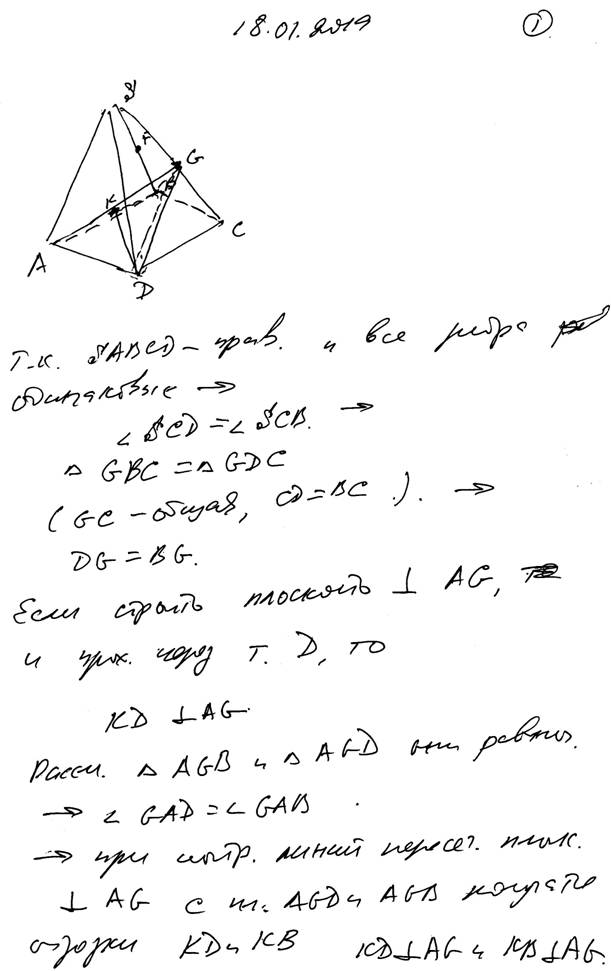 18.01.2019 ①
S
F
G
K
B
C
A
D
Т.к. SABCD – прав. и все ребра
одинаковые →
∠ SCD = ∠ SCB. →
△ GBC = △ GDC
(GC – общая, CD = BC). →
DG = BG.
Если строить плоскость ⊥ AG,
и прох. через т. D, то
KD ⊥ AG.
Рассм. △ AGB и △ AGD они равны.
→ ∠ GAD = ∠ GAB.
→ при линий пересеч. плоск.
⊥ AG с AGD и AGB
отрезки KD и KB KD ⊥ AG и KB ⊥ AG.